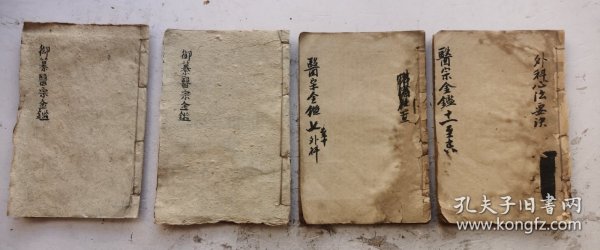 御纂醫宗金鑑
御纂醫宗金鑑
醫宗金鑑
外科
外科心法要訣
醫宗金鑑
孔夫子旧书网
kongfz.com